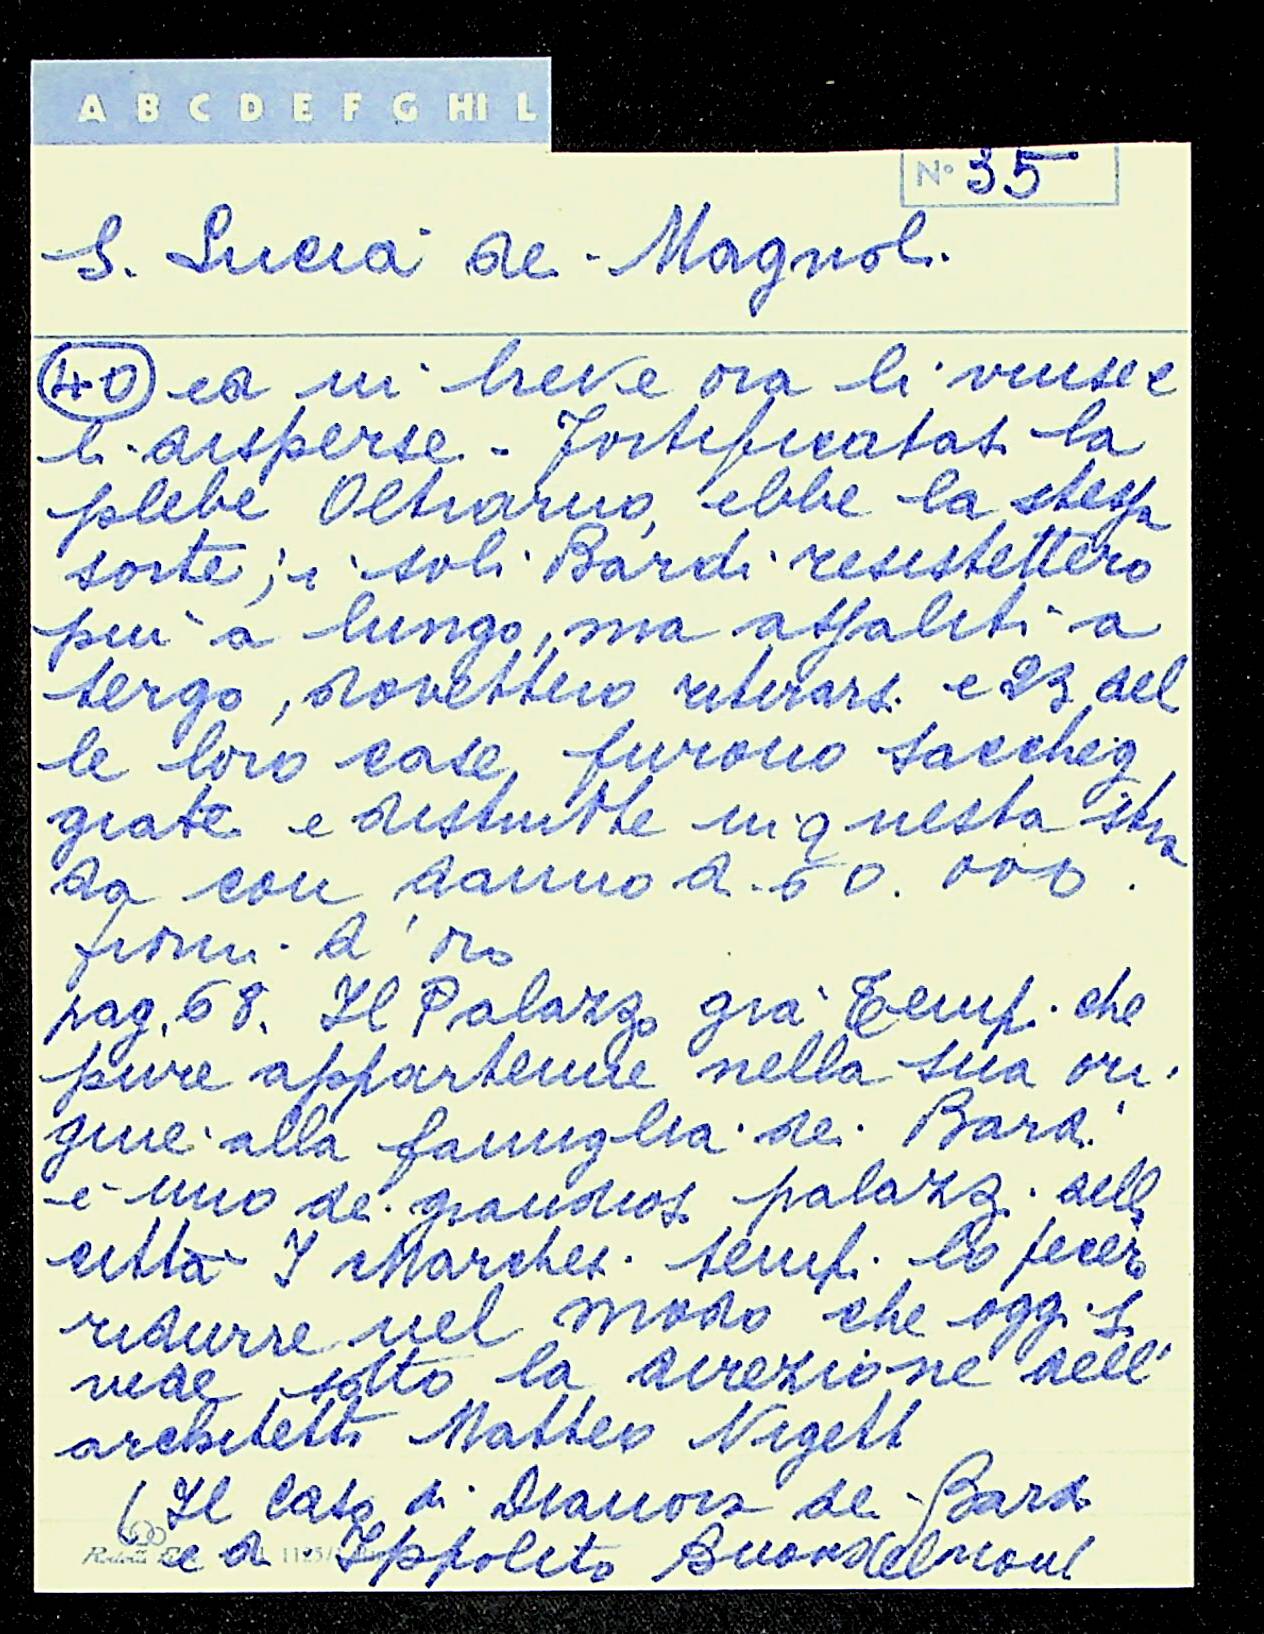 A B C D E F G HI L
N° 35
S. Lucia de Magnoli
40 ed in breve ora li vinse e
li disperse. Fortificatasi la
plebe Oltrarno, ebbe la stessa
sorte; i soli Bardi resistettero
più a lungo, ma assaliti a
tergo, dovettero ritirarsi e 23 del
le loro case, furono saccheg
giate e distrutte in questa stra
da con danno di 60.000
fiorini d'oro
pag. 68. Il Palazzo già Tempi che
pure appartenne nella sua ori
gine alla famiglia dei Bardi
è uno dei grandiosi palazzi della
città I Marchesi Tempi lo fecero
ridurre nel modo che oggi si
vede sotto la direzione dell'
architetto Matteo Nigetti
(Il caso di Dianora de Bardi
e di Ippolito Buondelmonti